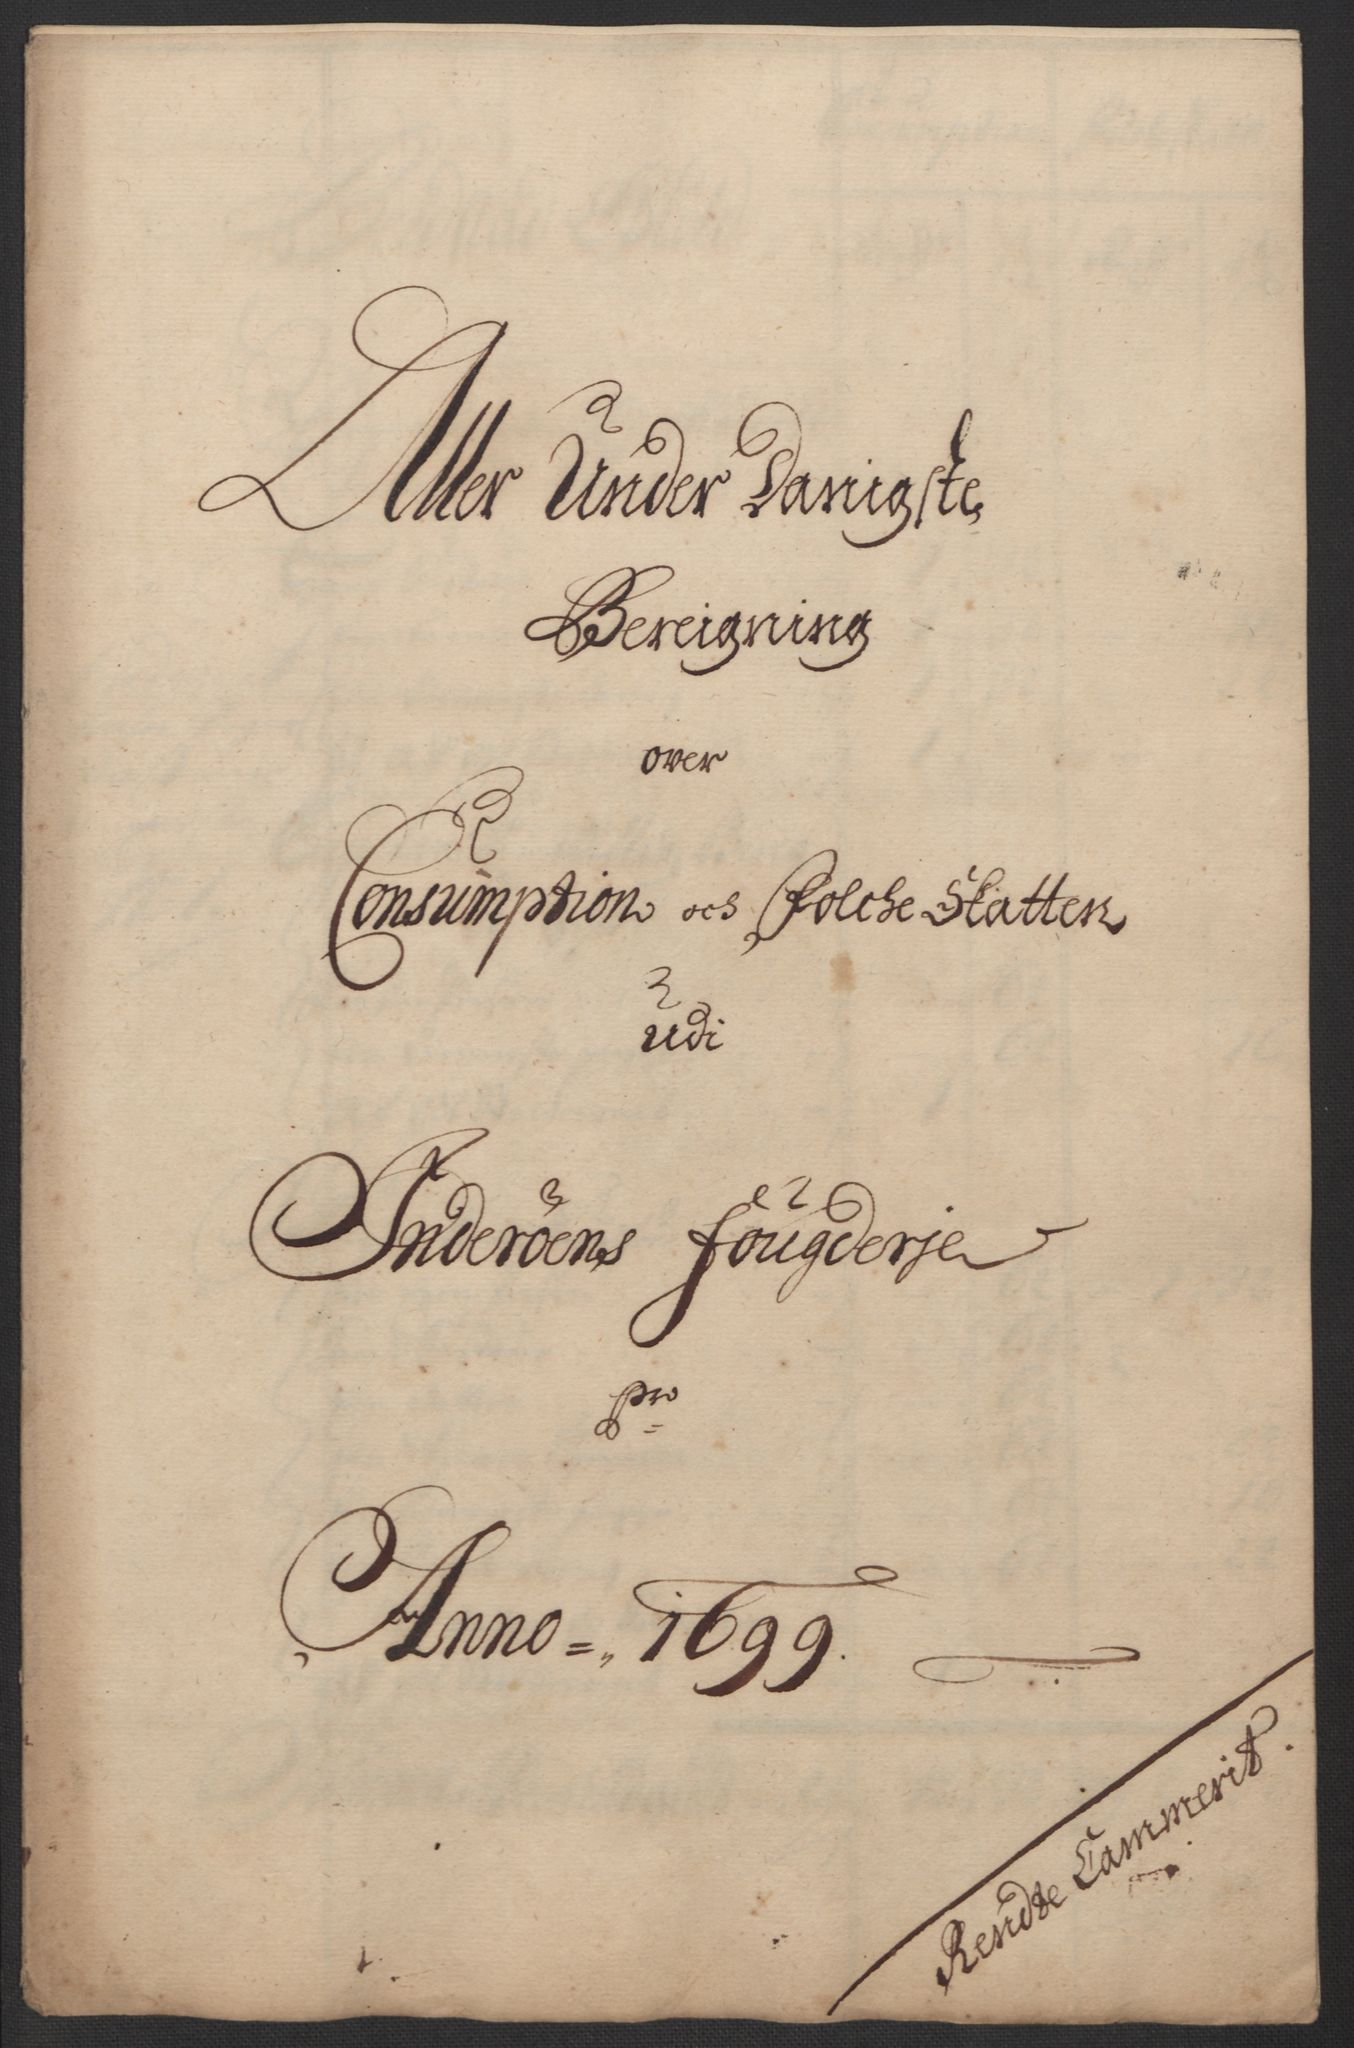 Aller Under Danigste
Bereigning
over
Consumption och Folche Skatten
Udi
Inderöens fougderje
pro
Anno = 1699.
Rendte Cammerit.